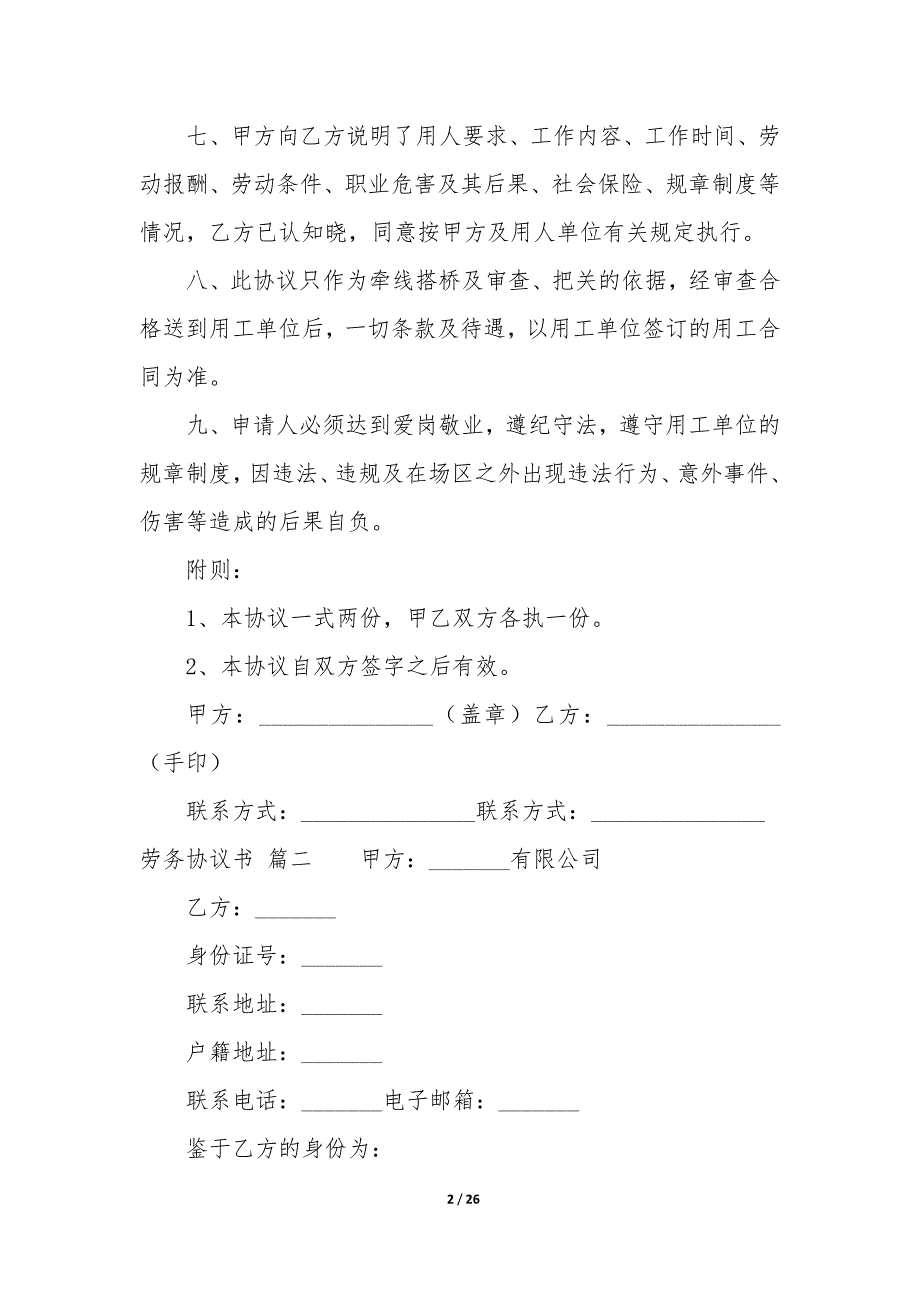 七、甲方向乙方说明了用人要求、工作内容、工作时间、劳
动报酬、劳动条件、职业危害及其后果、社会保险、规章制度等
情况，乙方已认知晓，同意按甲方及用人单位有关规定执行。
八、此协议只作为牵线搭桥及审查、把关的依据，经审查合
格送到用工单位后，一切条款及待遇，以用工单位签订的用工合
同为准。
九、申请人必须达到爱岗敬业，遵纪守法，遵守用工单位的
规章制度，因违法、违规及在场区之外出现违法行为、意外事件、
伤害等造成的后果自负。
附则：
1、本协议一式两份，甲乙双方各执一份。
2、本协议自双方签字之后有效。
甲方：_______________（盖章）乙方：_______________
（手印）
联系方式：_______________联系方式：_______________
劳务协议书 篇二　　甲方：_______有限公司
乙方：_______
身份证号：_______
联系地址：_______
户籍地址：_______
联系电话：_______电子邮箱：_______
鉴于乙方的身份为：
2 / 26